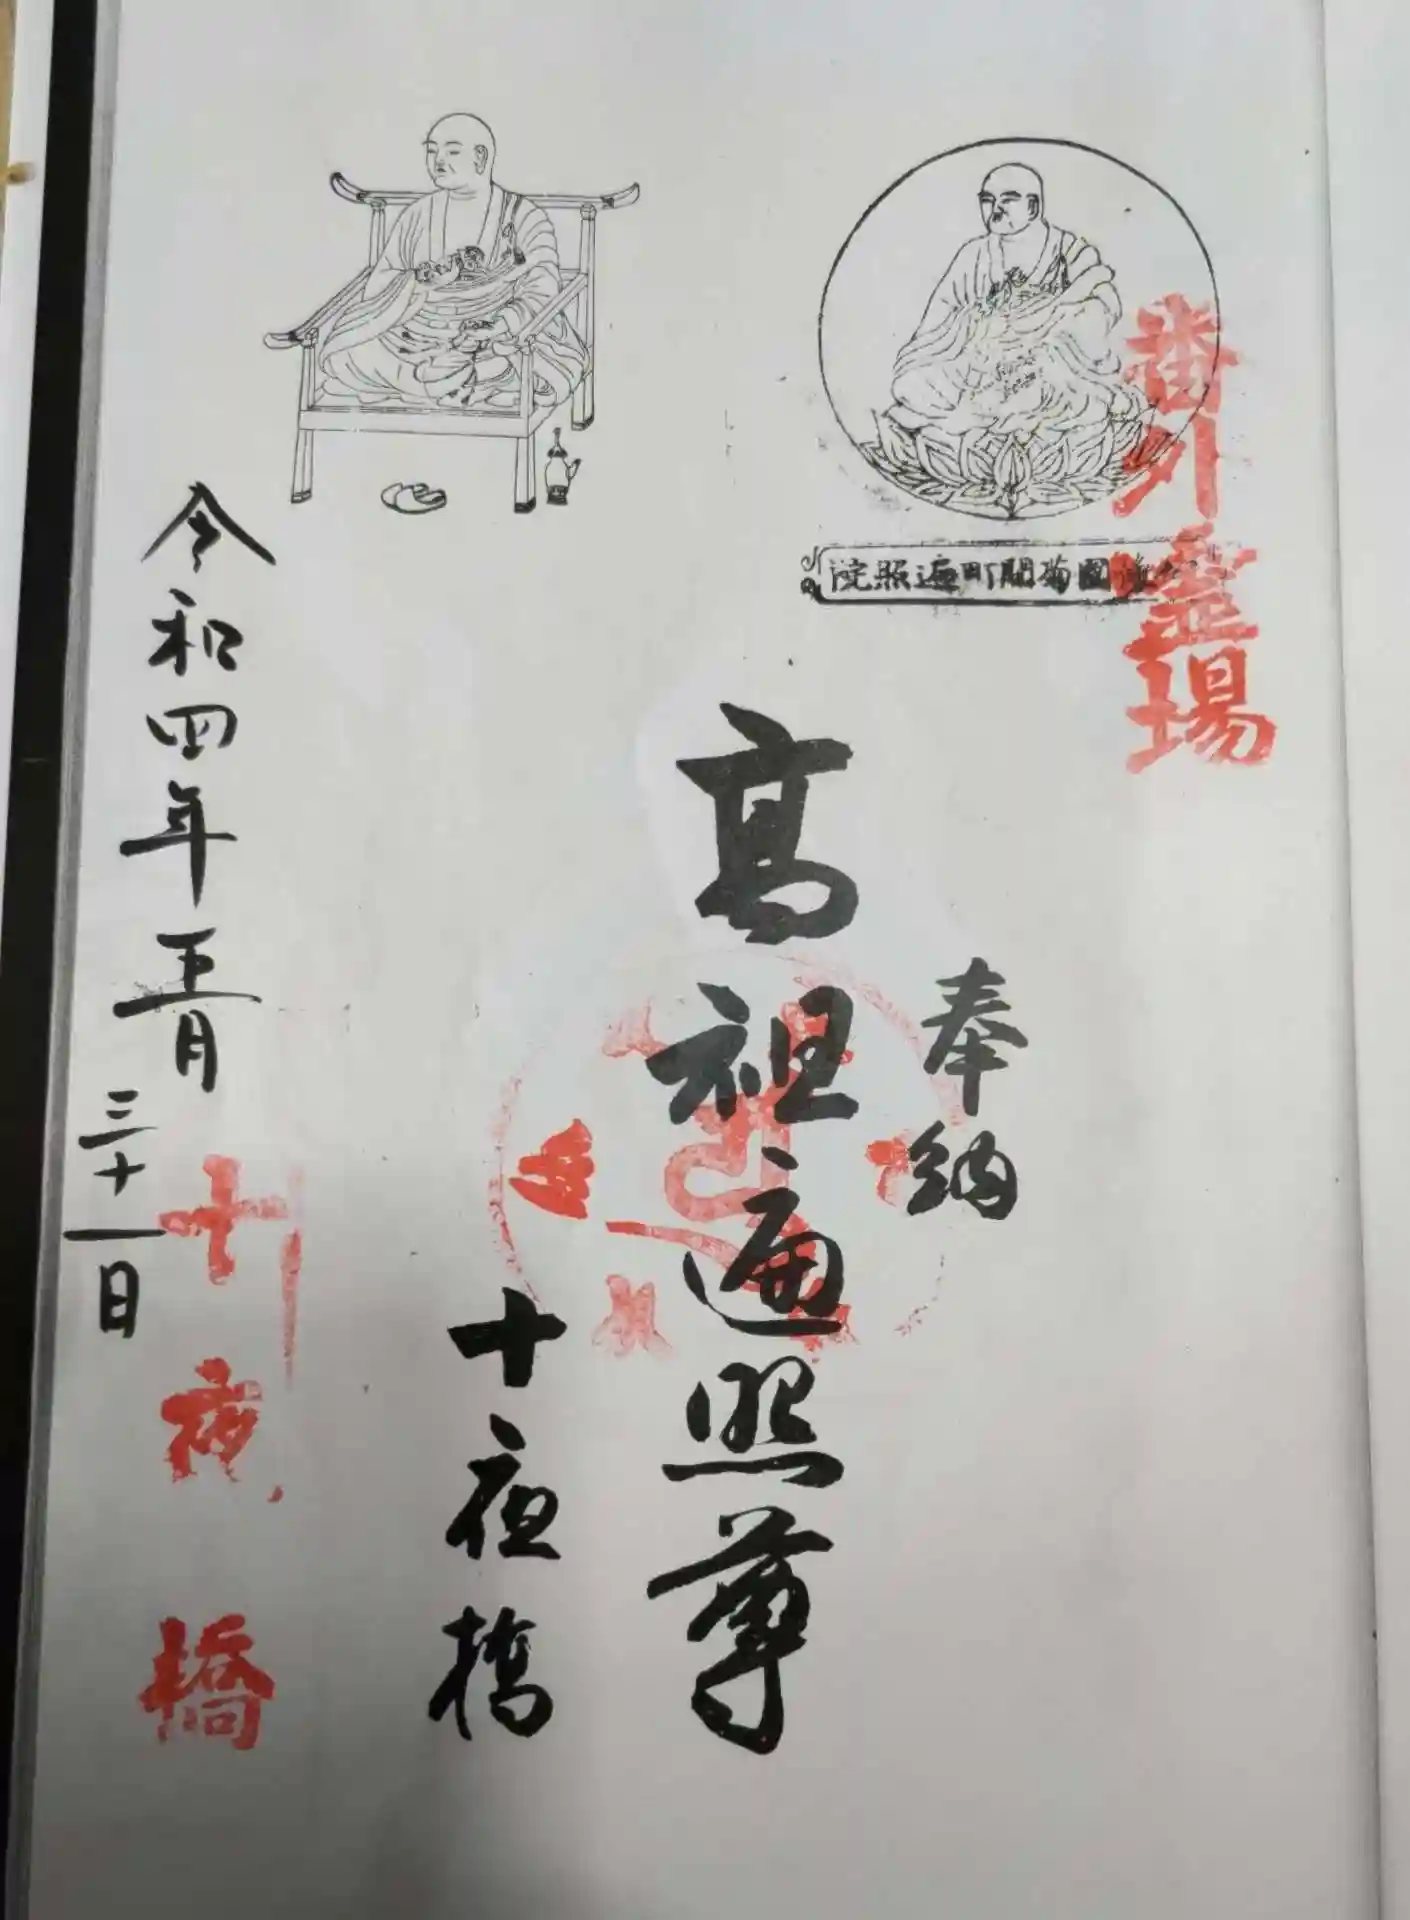 番外霊場
國菊間町遍照院
奉納
高祖遍照尊
十夜橋
十夜橋
令和四年五月三十一日